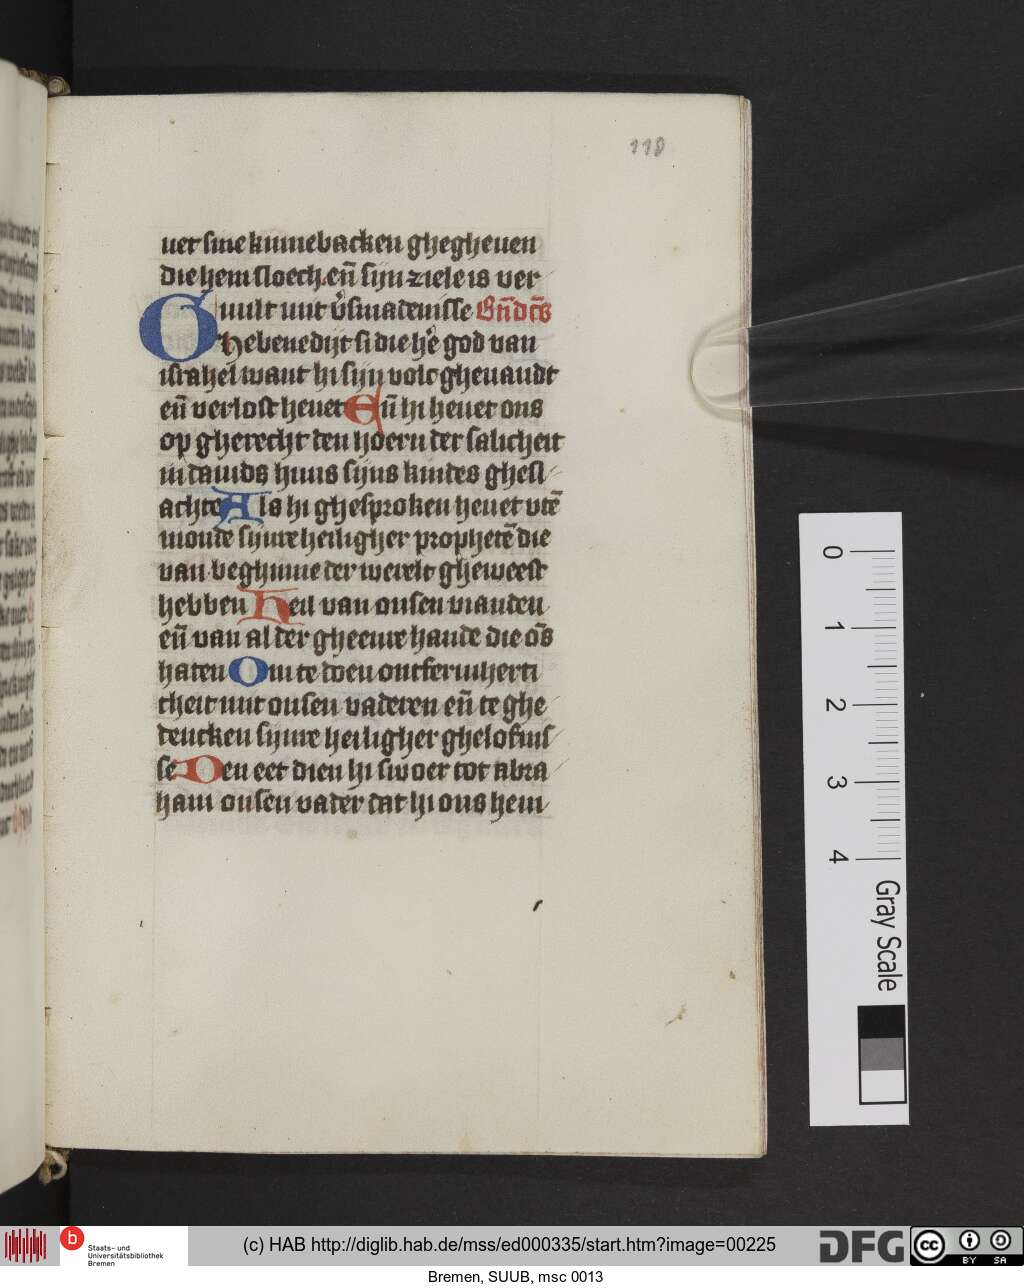 118
uer sine kinnebacken ghegheuen
die hem sloech. eñ sijn ziele is ver
uult mit v̓smadenisse Bñdc̄s
Ghebenedijt si die he̓ god van
israhel want hi sijn volc gheuandt
eñ verlost heuet Eñ hi heuet ons
op gherecht den hoern der salicheit
in dauids huus sijns kindes ghesl
achte Als hi ghesproken heuet vtē
monde sijnre heiligher prophetē die
van beghinne der werelt gheweest
hebben Heil van onsen vianden
eñ van al der gheenre hande die ōs
haten Om te doen ontfermherti
cheit mit onsen vaderen eñ te ghe
dencken sijnre heiligher gheloftnis
se Den eet dien hi swoer tot abra
ham onsen vader dat hi ons hem
0
1
2
3
4
Gray Scale
b
Staats- und
Universitätsbibliothek
Bremen
(c) HAB http://diglib.hab.de/mss/ed000335/start.htm?image=00225
DFG
cc
BY SA
Bremen, SUUB, msc 0013